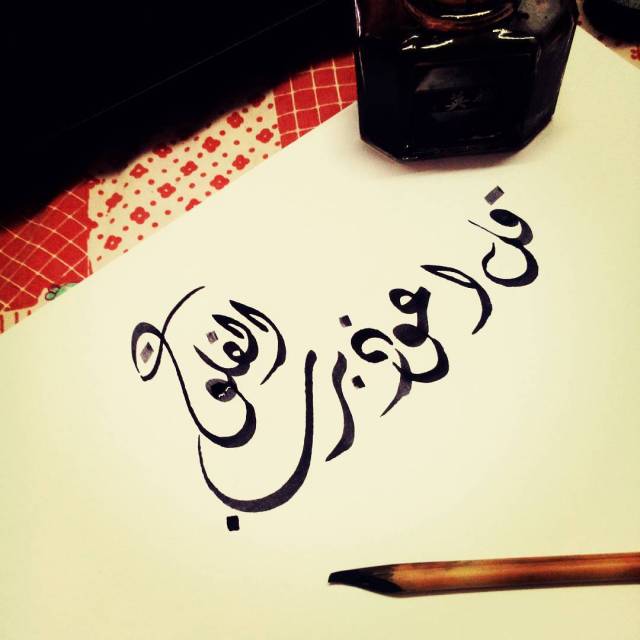 قل اعوذ برب الفلق